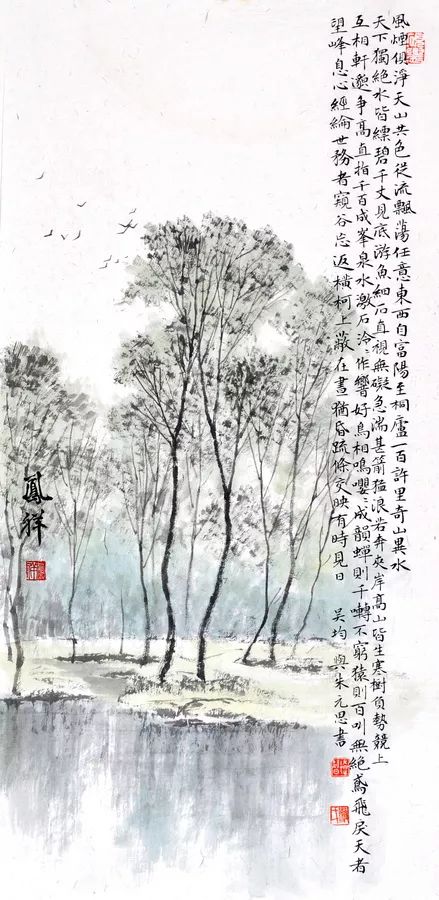 風煙俱淨天山共色從流飄蕩任意東西自富陽至桐廬一百許里奇山異水
天下獨絕水皆縹碧千丈見底游魚細石直視無礙急湍甚箭猛浪若奔夾岸高山皆生寒樹負勢競上
互相軒邈爭高直指千百成峯泉水激石泠〻作響好鳥相鳴嚶〻成韻蟬則千囀不窮猿則百叫無絕鳶飛戾天者
望峰息心經綸世務者窺谷忘返橫柯上蔽在晝猶昏疏條交映有時見日 吳均 與朱元思書
鳳祥